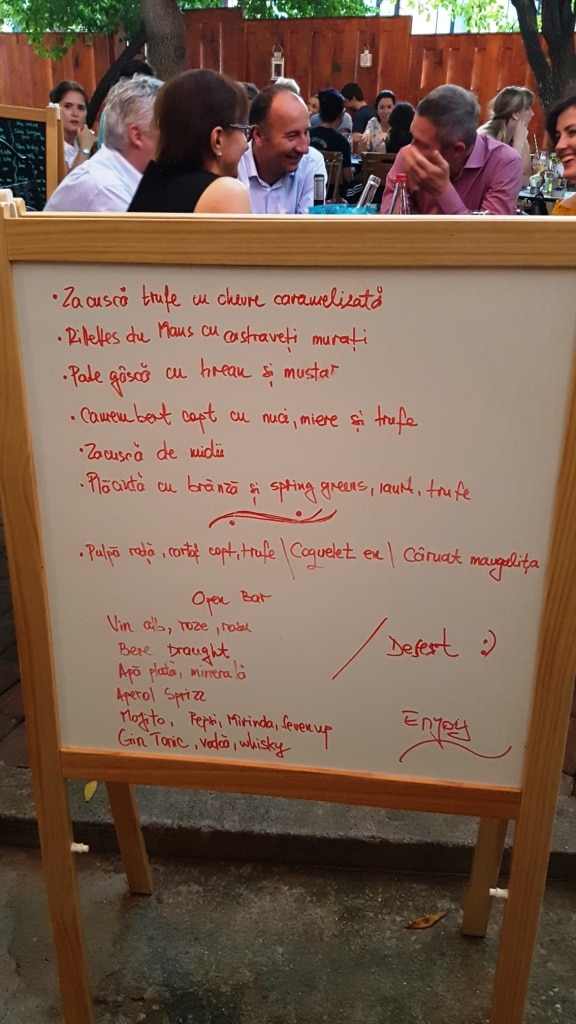 • Zacuscă trufe cu chevre caramelisată
• Rillettes du Mans cu castraveți murați
• Pate gâscă cu hrean și mustar
• Camembert copt cu nuci, miere și trufe
• Zacuscă de midii
• Plăcintă cu brânză și spring greens, iaurt, trufe
• Pulpă rață, cartof copt, trufe / Coquelet en / Cârnat mangalița
Open Bar
Vin alb, roze, rosu
Bere Draught
Apă plată, minerală
Aperol Sprizz
Mojito, Pepsi, Mirinda, Sevenup
Gin Tonic, vodcă, whisky
/ Desert :)
Enjoy